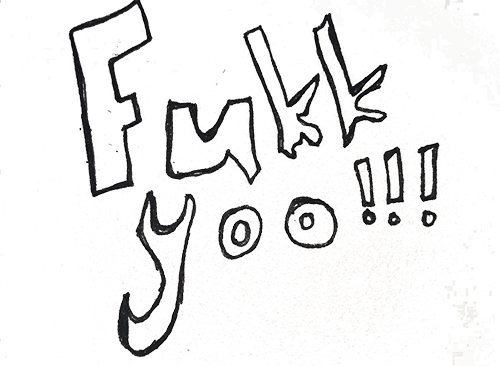 Fukk
yoo!!!